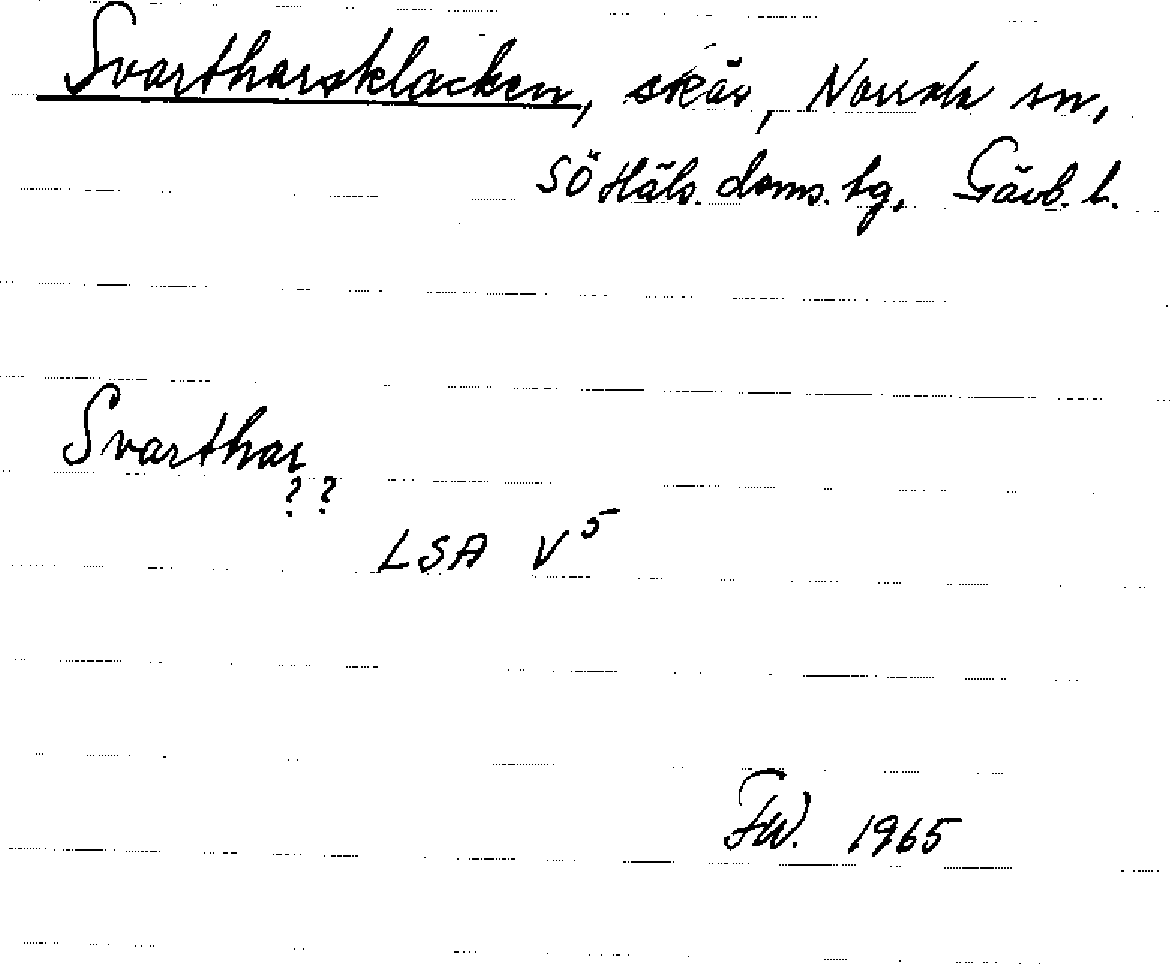 Svartharsklacken, skär, Norrala sn,
SÖ Häls. doms. tg, Gävb. l.
Svarthar
? ?
LSA V⁵
FW. 1965